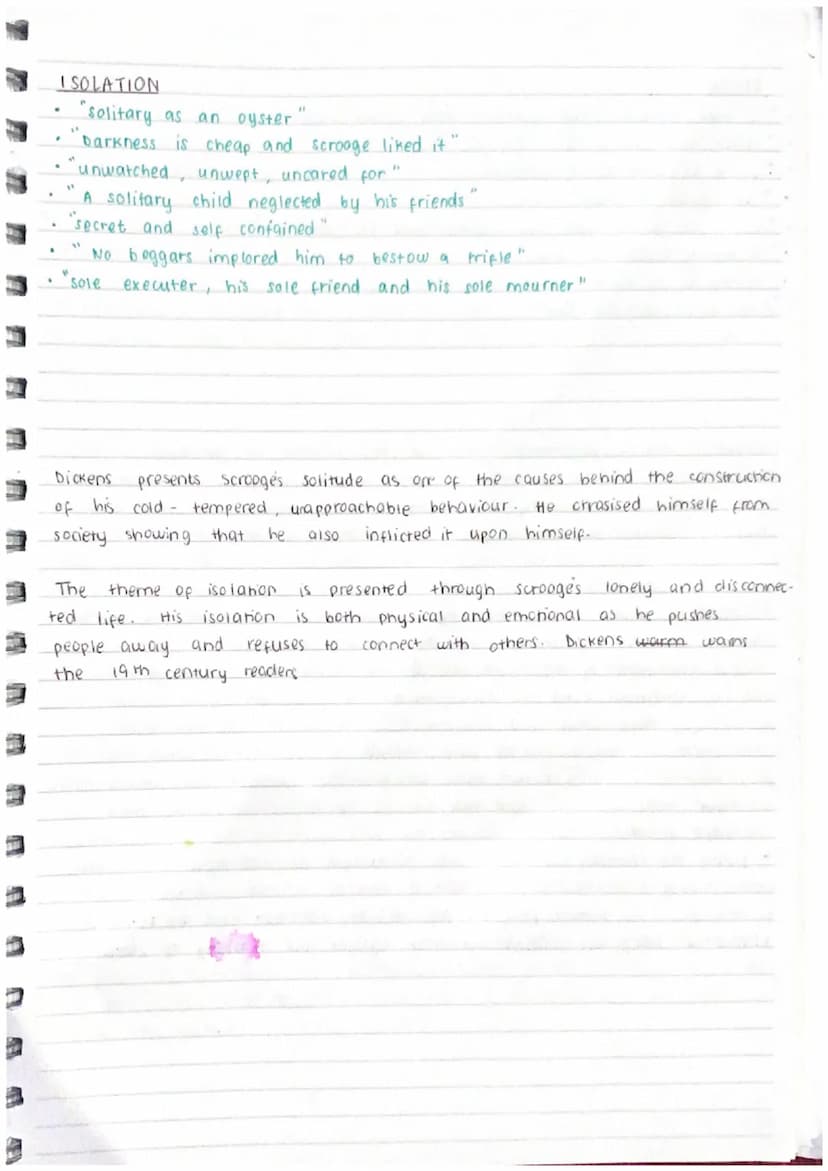 ISOLATION
• "solitary as an oyster"
• "Darkness is cheap and scrooge liked it"
• "unwatched, unwept, uncared for"
• "A solitary child neglected by his friends"
• "secret and self confained"
• "No beggars implored him to bestow a trifle"
• "sole executer, his sole friend and his sole mourner"
Dickens presents scrooge's solitude as one of the causes behind the construction
of his cold-tempered, unapproachable behaviour. He himself from
society showing that he also inflicted it upon himself.
The theme of isolation is presented through scrooge's lonely and disconnec-
ted life. His isolation is both physical and emotional as he pushes
people away and refuses to connect with others. Dickens warns
the 19th century readers